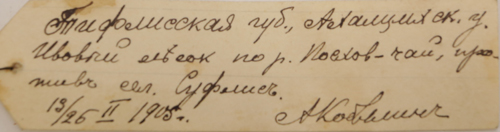 Тифлисская губ., Ахалцихск. у.
Ивовый лѣсок по р. Посхов-чай, про-
тивъ сел. Суфлисъ.
13/26 II 1905 г. А Кобылинъ